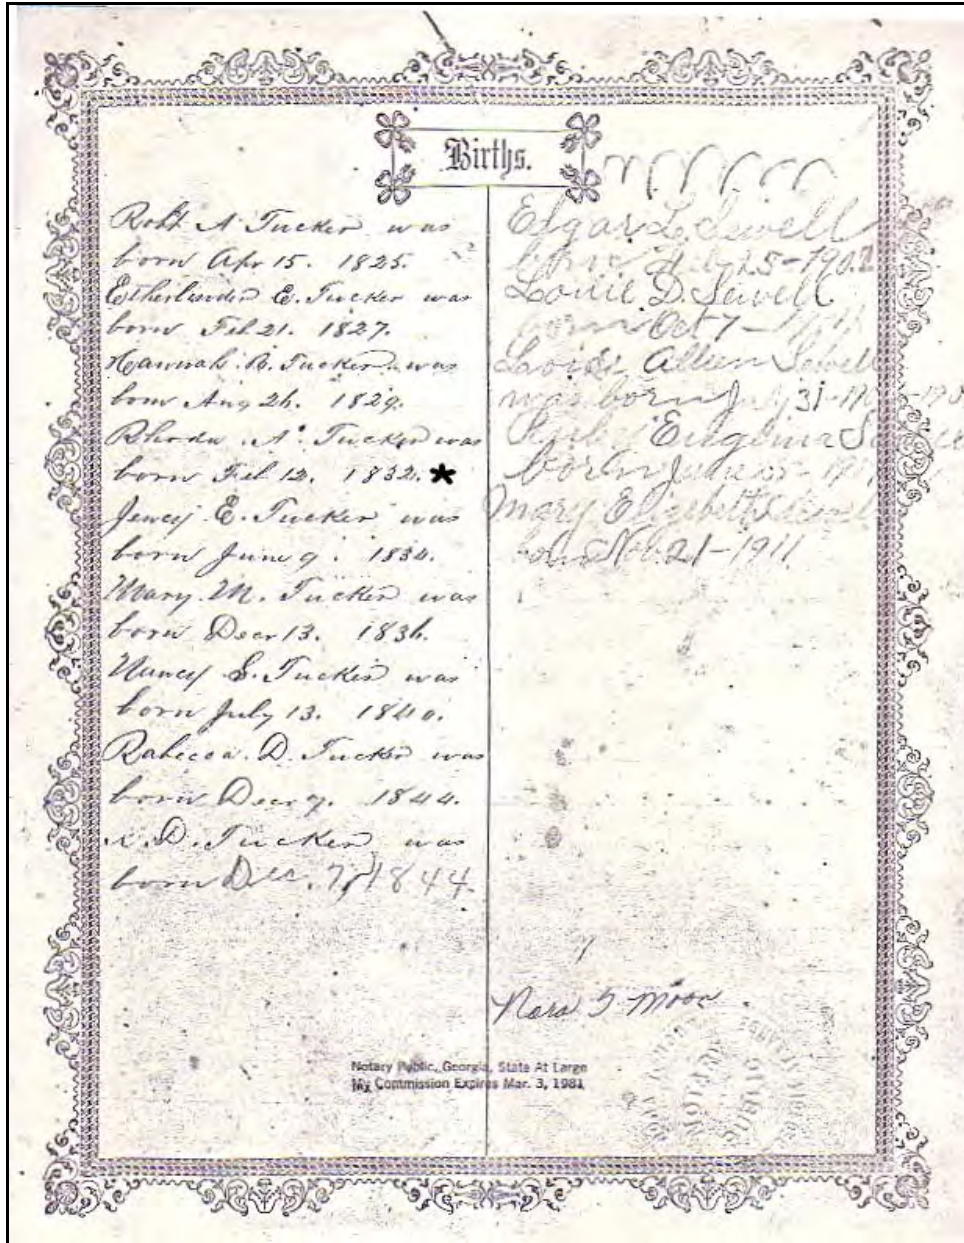 Births.
Robt A Tucker was
born Apr 15. 1825.
Etherlinder E. Tucker was
born Feb 21. 1827.
Hannah B. Tucker was
born Aug 26. 1829.
Rhoda A. Tucker was
born Feb 12. 1832. *
Jency E. Tucker was
born June 9. 1834.
Mary M. Tucker was
born Decr 13. 1836.
Nancy S. Tucker was
born July 13. 1840.
Rabecca. D. Tucker was
born Decr 7. 1844.
D. Tucker was
born Dec. 7, 1844.
Elgar L. Sewell
born 25-190
Louie D. Sewell
born Oct 7 -
Allien Sewell
was born July 31-
Ruby Eugenia
born June
Mary Elizebeth Sewell
born Nov. 21-1911
Nora
Notary Public, Georgia, State At Large
My Commission Expires Mar. 3, 1981
NOTARY
PUBLIC